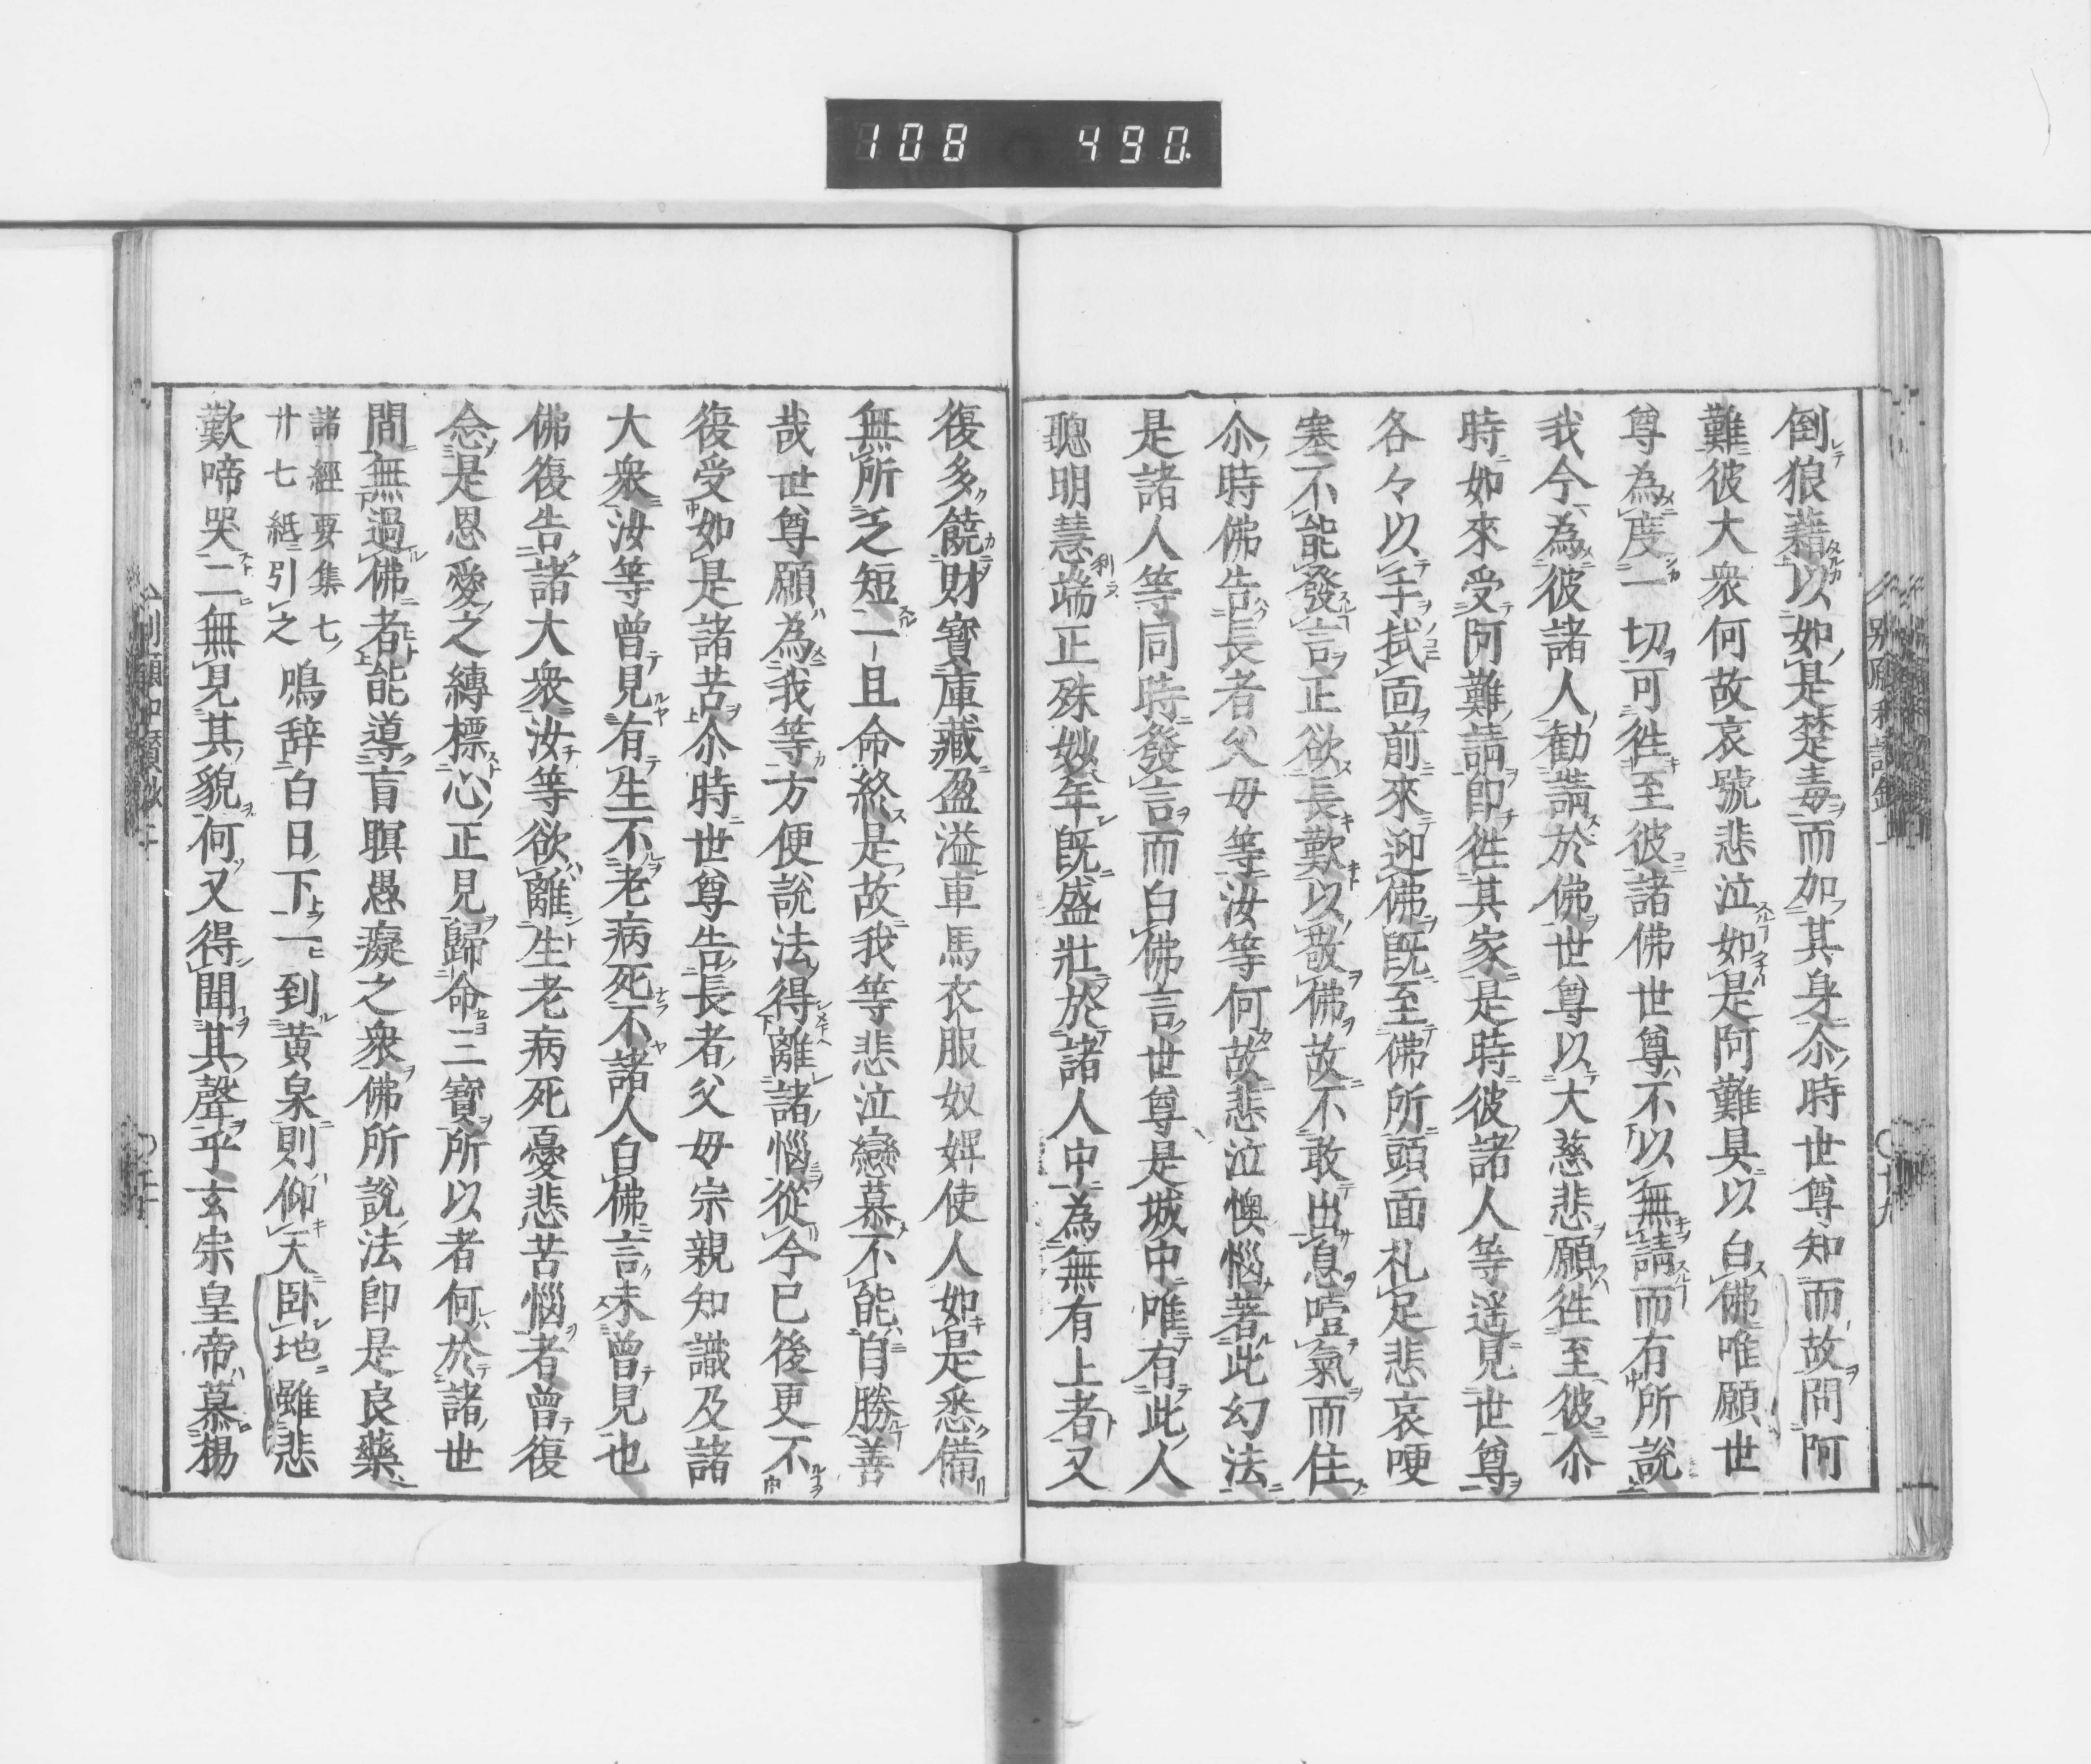 108 490.
倒狼藉以如是楚毒而加其身尒時世尊知而故問阿
難彼大衆何故哀號悲泣如是阿難具以白佛唯願世
尊為度一切可徃至彼諸佛世尊不以無請而有所說
我今為彼諸人勸請於佛世尊以大慈悲願徃至彼尒
時如來受阿難請即徃其家是時彼諸人等遥見世尊
各々以手拭面前來迎佛既至佛所頭面礼足悲哀哽
塞不能發言正欲長歎以敬佛故不敢出息噎氣而住
尒時佛告長者父母等汝等何故悲泣懊惱著此幻法
是諸人等同時發言而白佛言世尊是城中唯有此人
聰明慧端正殊妙年既盛壯於諸人中為無有上者又
復多饒財寳庫藏盈溢車馬衣服奴婢使人如是悉備
無所乏短一旦命終是故我等悲泣戀慕不能自勝善
哉世尊願為我等方便說法得離諸惱從今已後更不
復受如是諸苦尒時世尊告長者父母宗親知識及諸
大衆汝等曾見有生不老病死不諸人白佛言未曾見也
佛復告諸大衆汝等欲離生老病死憂悲苦惱者曾復
念是恩愛之縛標心正見歸命三寳所以者何於諸世
間無過佛者能導盲瞑愚癡之衆佛所說法即是良藥
諸經要集七
廿七紙引之
鳴辞白日下一到黄泉則仰天臥地雖悲
歎啼哭二無見其貌何又得聞其聲乎玄宗皇帝慕楊